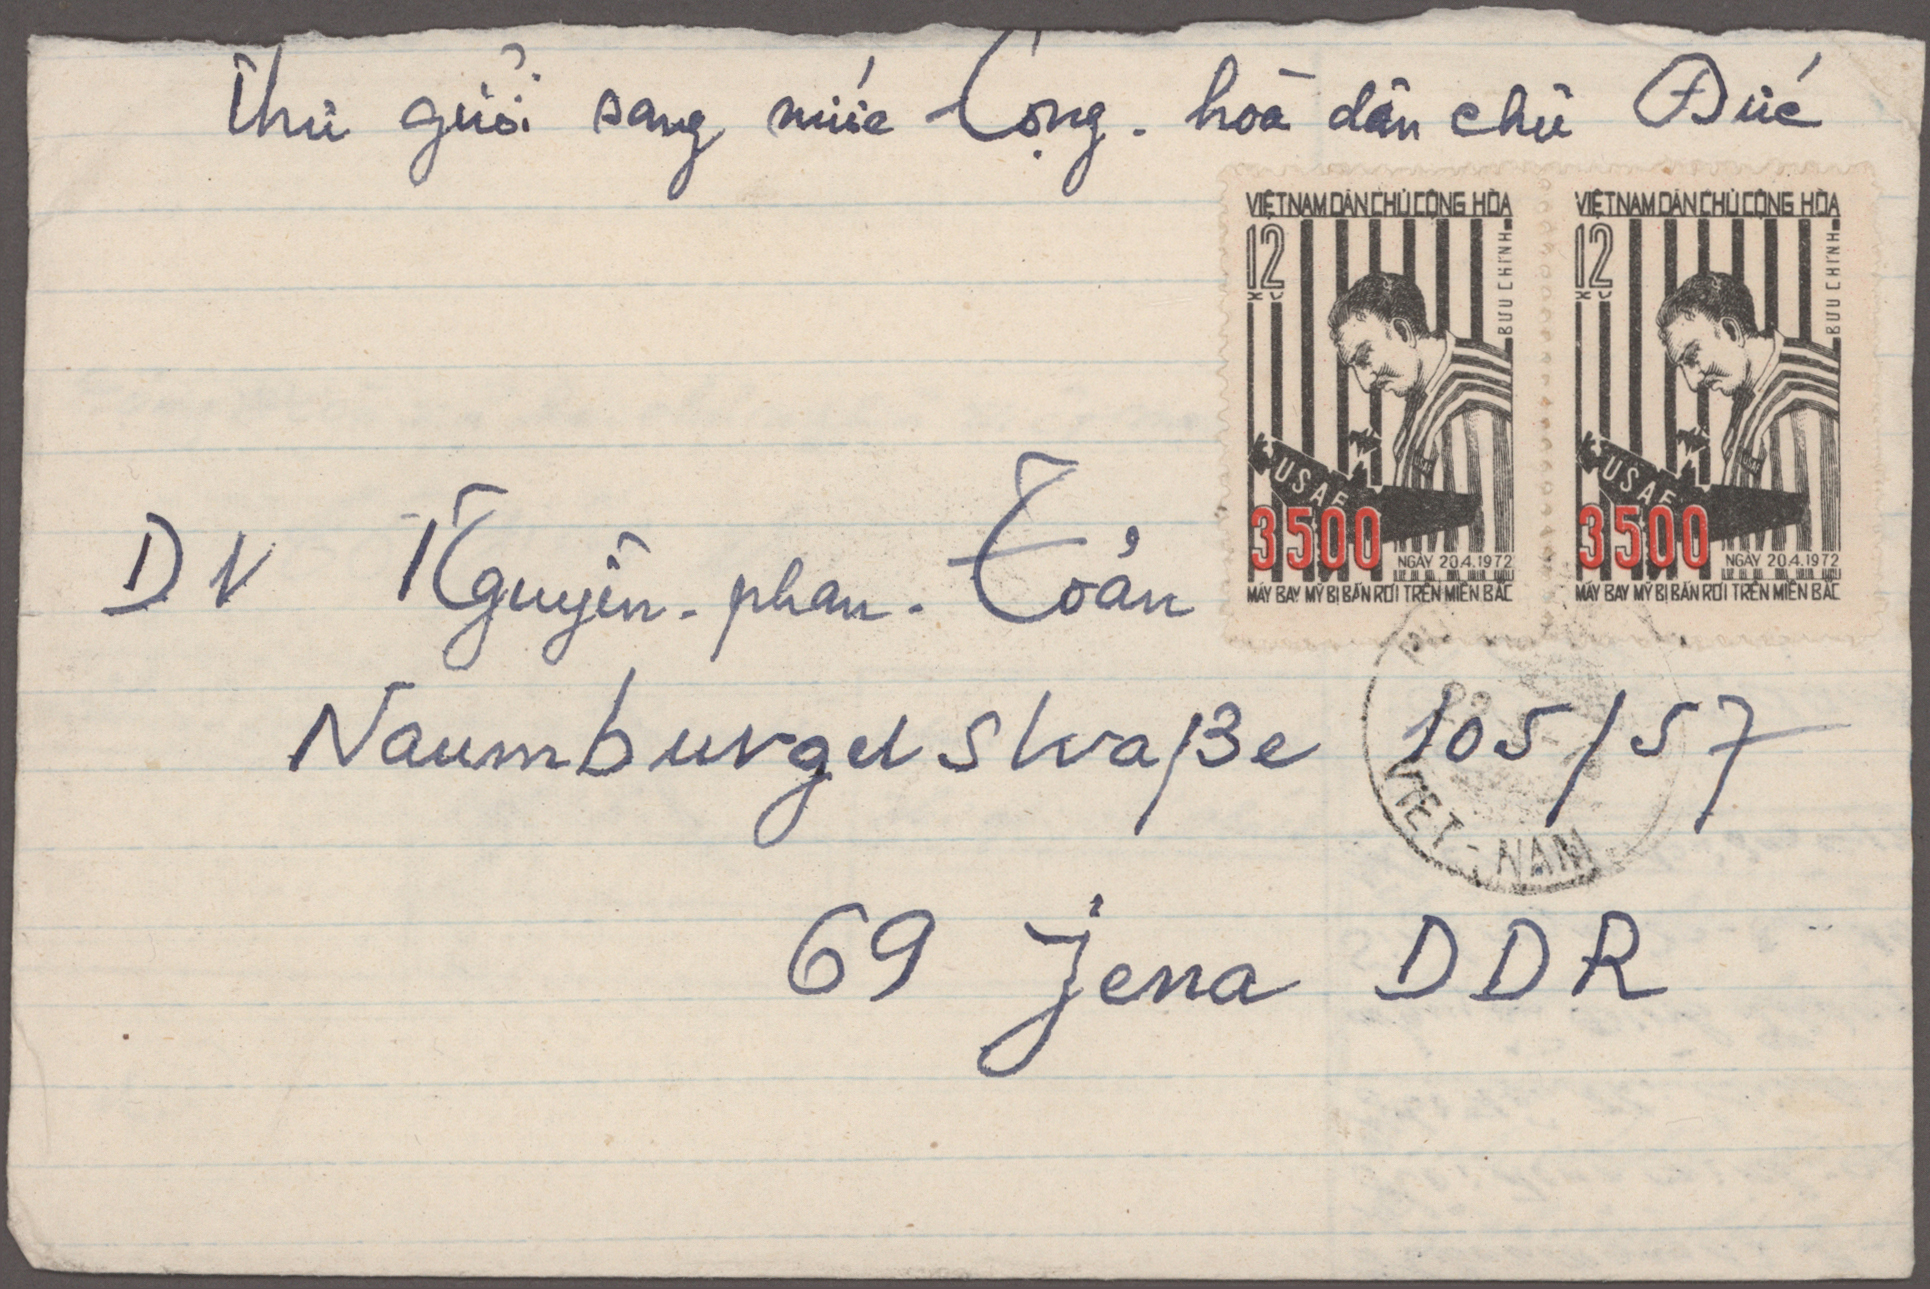 Thư gửi sang nước Cộng. hòa dân chủ Đức
VIỆT NAM DÂN CHỦ CỘNG HÒA
12
XU
BƯU CHÍNH
USAF
3500
NGÀY 20.4.1972
MÁY BAY MỸ BỊ BẮN RƠI TRÊN MIỀN BẮC
VIỆT NAM DÂN CHỦ CỘNG HÒA
12
XU
BƯU CHÍNH
USAF
3500
NGÀY 20.4.1972
MÁY BAY MỸ BỊ BẮN RƠI TRÊN MIỀN BẮC
DV Nguyễn. phan. Toản
Naumburgerstraße 105/57
VIET-NAM
69 Jena DDR